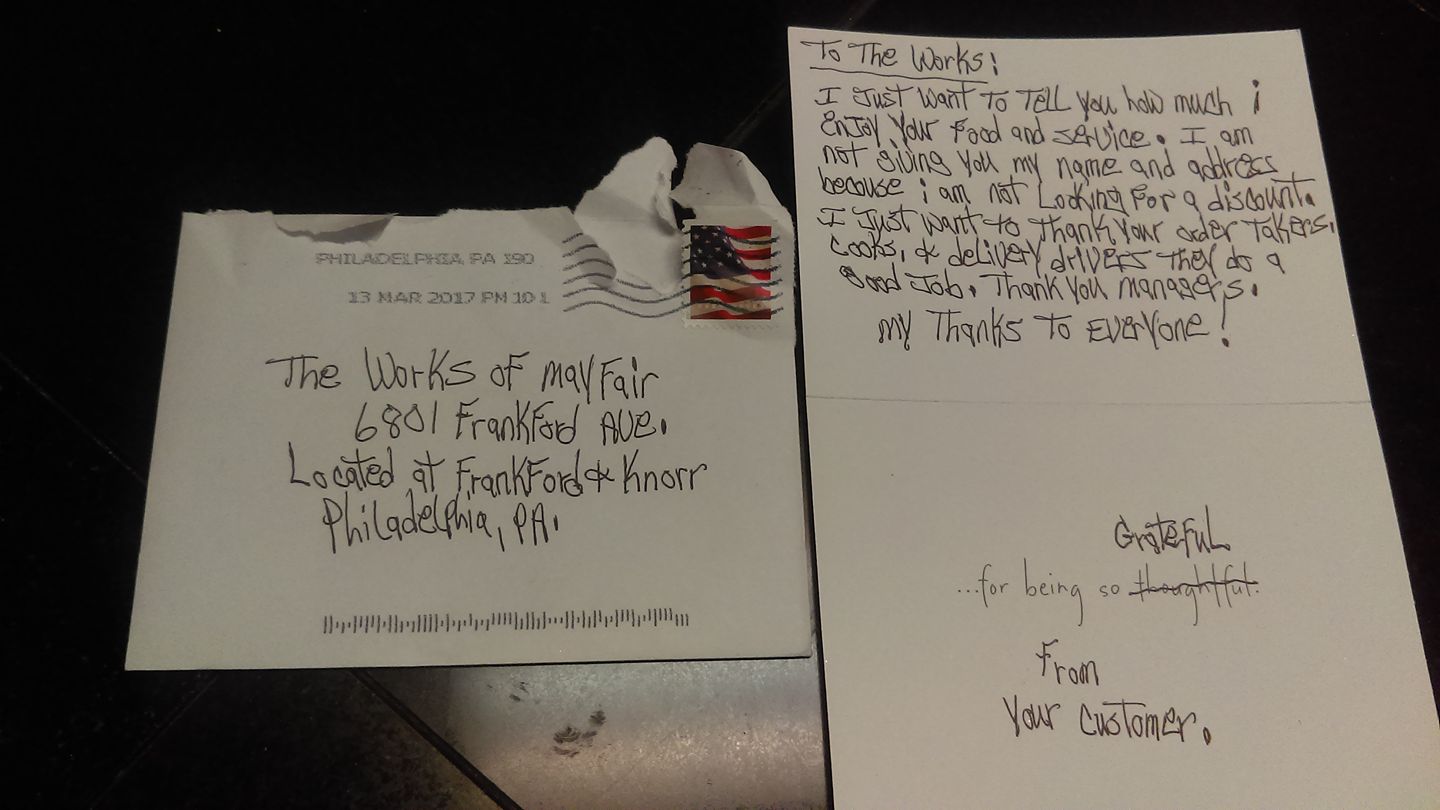 PHILADELPHIA PA 190
13 MAR 2017 PM 10 L
The Works of mayFair
6801 FrankFord AVe.
Located at FrankFord & Knorr
Philadelphia, PA.
To The Works:
I Just Want To Tell you how much i
enJoy your Food and service. I am
not giving you my name and address
because i am not Looking For a discount.
I Just want to thank your order Takers,
Cooks, & delivery drivers they do a
Good Job. Thank you managers.
my Thanks To Everyone!
GrateFuL
...for being so thoughtful.
From
Your Customer.